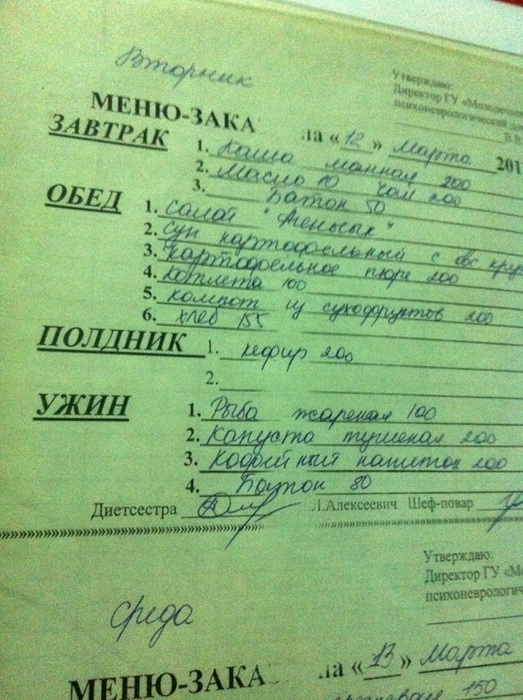 Вторник
Утверждаю:
Директор ГУ «Молодечнен
психоневрологический
МЕНЮ-ЗАКА ла «12» Марта 201
ЗАВТРАК
1. Каша манная 200
2. Масло 10 Чай 200
3. Батон 50
ОБЕД
1. Салат
2. Суп картофельный с овс круп
3. Картофельное пюре 200
4. Котлета 100
5. Компот из сухофруктов 200
6. Хлеб 155
ПОЛДНИК
1. кефир 200
2.
УЖИН
1. Рыба жареная 100
2. Капуста тушеная 200
3. Кофейный напиток 200
4. Батон 80
Диетсестра Л.Алексеевич Шеф-повар
Среда
Утверждаю:
Директор ГУ «Мо
психоневрологиче
МЕНЮ-ЗАКА ла «13» Марта
150